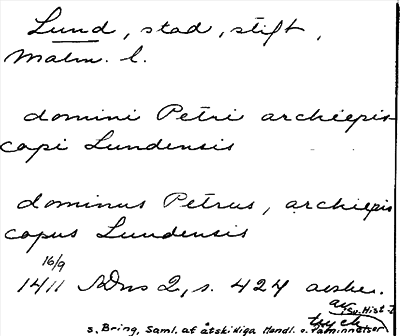 Lund, stad, stift,
Malm. l.
domini Petri archiepis-
copi Lundensis
dominus Petrus, archiepis
copus Lundensis
16/9
1411 SDns 2, s. 424
av
tryck
s. Bring, Saml. af åtskilliga Handl. o. Påminnelser